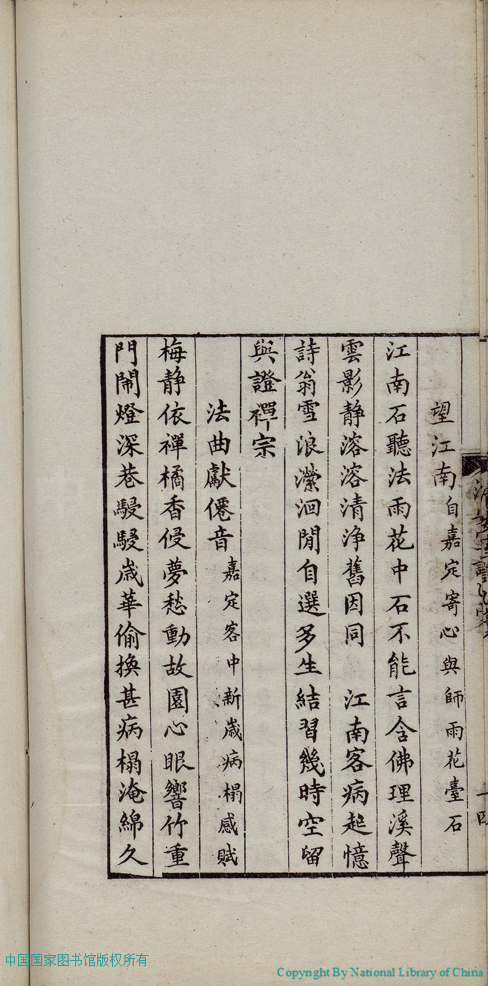 望江南自嘉定寄心與師雨花臺石
江南石聽法雨花中石不能言含佛理溪聲
雲影静溶溶清浄舊因同　江南客病起憶
詩翁雪浪瀠洄閒自選多生結習幾時空留
與證禪宗
法曲獻僊音嘉定客中新歲病榻感賦
梅静依禪橘香侵夢愁動故園心眼響竹重
門鬧燈深巷駸駸歲華偷換甚病榻淹綿久
中国国家图书馆版权所有
Copyright By National Library of China